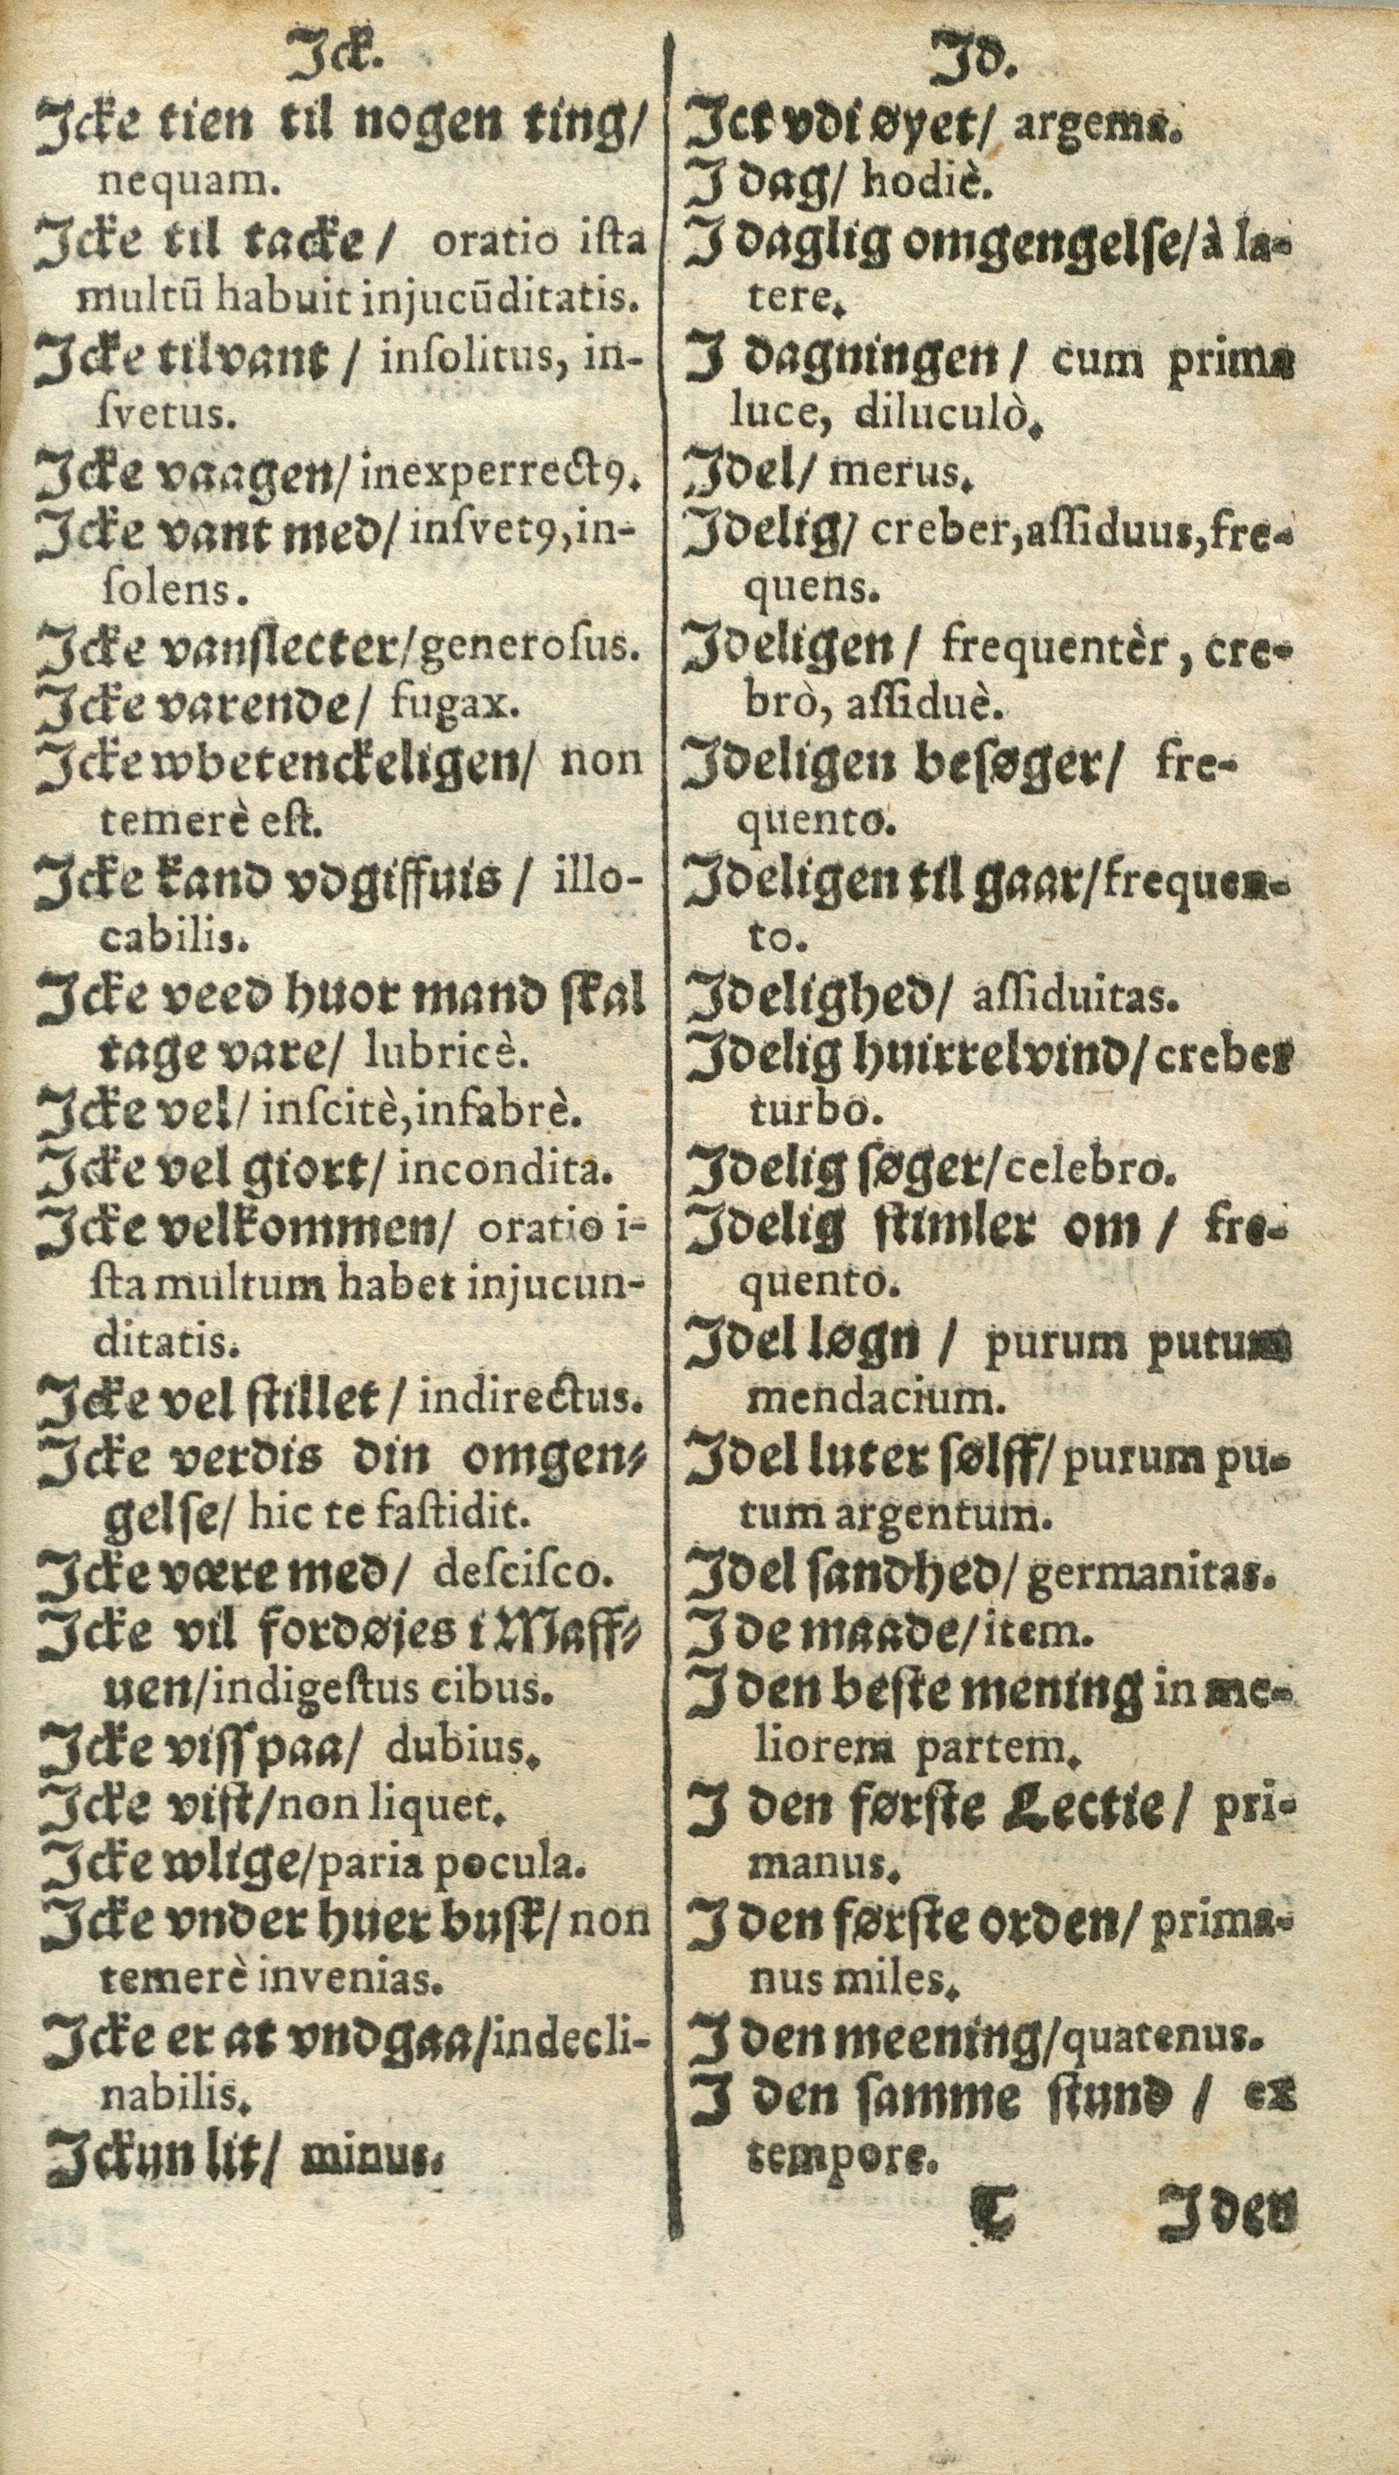 Ick.
Icke tien til nogen ting/
nequam.
Icke til tacke / oratio iſta
multū habuit injucūditatis.
Icke tilvant / inſolitus, in-
ſvetus.
Icke vaagen/ inexperrectꝰ.
Icke vant med/ inſvetꝰ, in-
ſolens.
Icke vanſlecter/ generoſus.
Icke varende/ fugax.
Icke wbetenckeligen/ non
temerè eſt.
Icke kand vdgiffuis / illo-
cabilis.
Icke veed huor mand ſkal
tage vare/ lubricè.
Icke vel/ inſcitè, infabrè.
Icke vel giort/ incondita.
Icke velkommen/ oratio i-
ſta multum habet injucun-
ditatis.
Icke vel ſtillet / indirectus.
Icke verdis din omgen-
gelſe/ hic te faſtidit.
Icke være med/ deſciſco.
Icke vil fordøjes i Maff-
uen/ indigeſtus cibus.
Icke viſſ paa/ dubius.
Icke viſt/ non liquet.
Icke wlige/ paria pocula.
Icke vnder huer buſk/ non
temerè invenias.
Icke er at vndgaa/ indecli-
nabilis.
Ickun lit/ minus.
Id.
Ict vdi øyet/ argema.
I dag/ hodiè.
I daglig omgengelſe/ à la-
tere.
I dagningen / cum prima
luce, diluculò.
Idel/ merus.
Idelig/ creber, aſſiduus, fre-
quens.
Ideligen / frequentèr, cre-
brò, aſſiduè.
Ideligen beſøger/ fre-
quento.
Ideligen til gaar/ frequen-
to.
Idelighed/ aſſiduitas.
Idelig huirrelvind/ creber
turbo.
Idelig ſøger/ celebro.
Idelig ſtimler om / fre-
quento.
Idel løgn / purum putum
mendacium.
Idel luter ſølff/ purum pu-
tum argentum.
Idel ſandhed/ germanitas.
I de maade/ item.
I den beſte mening in me-
liorem partem.
I den førſte Lectie/ pri-
manus.
I den førſte orden/ prima-
nus miles.
I den meening/ quatenus.
I den ſamme ſtund / ex
tempore.
T I den